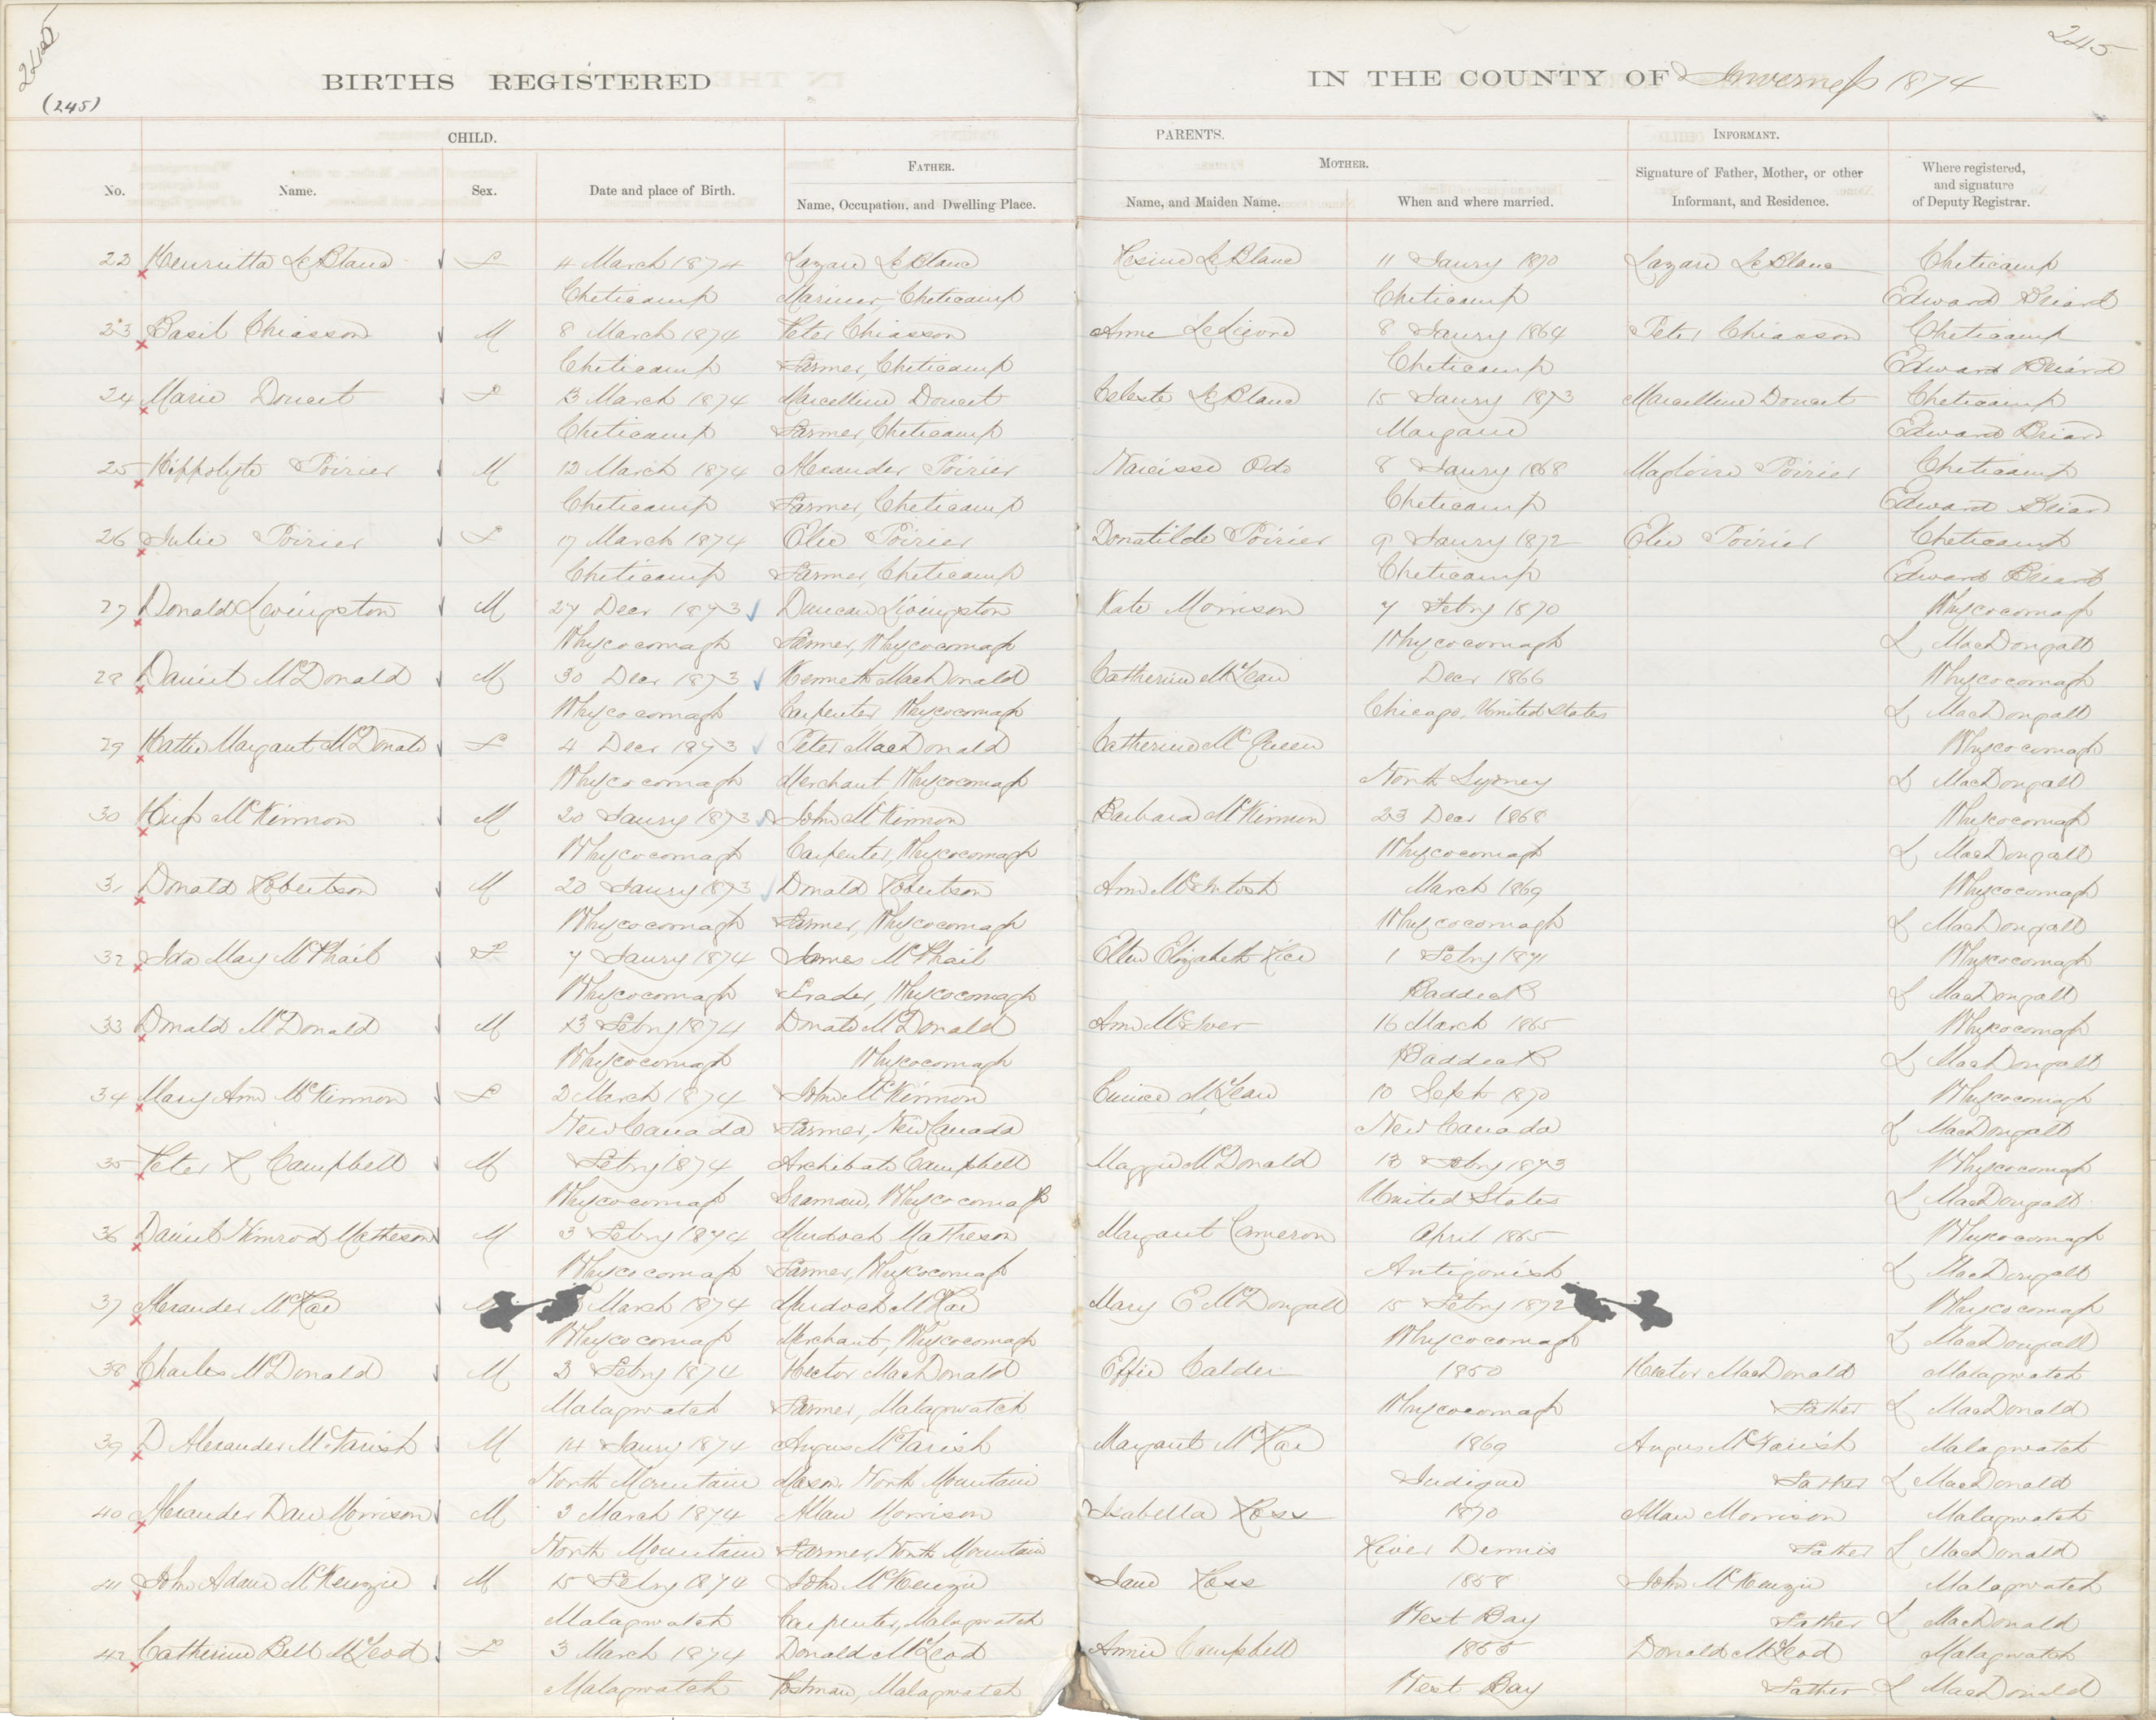 245
(245)
BIRTHS REGISTERED
IN THE COUNTY OF Inverness 1874
245
CHILD.
PARENTS.
INFORMANT.
No.
Name.
Sex.
Date and place of Birth.
FATHER.
Name, Occupation, and Dwelling Place.
MOTHER.
Name, and Maiden Name.
When and where married.
Signature of Father, Mother, or other
Informant, and Residence.
Where registered,
and signature
of Deputy Registrar.
22 Henrietta LeBlanc F 4 March 1874 Lazare LeBlanc LeBlanc 11 Jaury 1870 Lazare LeBlanc Cheticamp
Cheticamp Mariner, Cheticamp Cheticamp Edward Briard
23 Basil Chiasson M 8 March 1874 Peter Chiasson Anne 8 Jaury 1864 Peter Chiasson Cheticamp
Cheticamp Farmer, Cheticamp Cheticamp Edward Briard
24 Marie Doucet F 13 March 1874 Marcelline Doucet Celeste LeBlanc 15 Jaury 1873 Marcelline Doucet Cheticamp
Cheticamp Farmer, Cheticamp Margaree Edward Briard
25 Hippolyte Poirier M 12 March 1874 Alexander Poirier Narcisse 8 Jaury 1868 Magloire Poirier Cheticamp
Cheticamp Farmer, Cheticamp Cheticamp Edward Briard
26 Julie Poirier F 17 March 1874 Elie Poirier Donatilde Poirier 9 Jaury 1872 Elie Poirier Cheticamp
Cheticamp Farmer, Cheticamp Cheticamp Edward Briard
27 Donald Levingston M 27 Decr 1873 Duncan Livingston Kate Morrison 7 Febry 1870 Whycocomagh
Whycocomagh Farmer, Whycocomagh Whycocomagh L MacDougall
28 Daniel McDonald M 30 Decr 1873 Kenneth MacDonald Catherine McLean Decr 1866 Whycocomagh
Whycocomagh Carpenter Whycocomagh Chicago, United States L MacDougall
29 Margaret McDonald F 4 Decr 1873 Peter MacDonald Catherine McQueen Whycocomagh
Whycocomagh Merchant, Whycocomagh North Sydney L MacDougall
30 McKinnon M 20 Jaury 1873 John McKinnon Barbara McKinnon 23 Decr 1868 Whycocomagh
Whycocomagh Carpenter, Whycocomagh Whycocomagh L MacDougall
31 Donald Robertson M 20 Jaury 1873 Donald Robertson Ann McIntosh March 1869 Whycocomagh
Whycocomagh Farmer, Whycocomagh Whycocomagh L MacDougall
32 Ida May McPhail F 7 Jaury 1874 James McPhail Ellen Elizabeth Rice 1 Febry 1871 Whycocomagh
Whycocomagh Trader, Whycocomagh Baddeck L MacDougall
33 Donald McDonald M 13 Febry 1874 Donald McDonald Ann McIver 16 March 1865 Whycocomagh
Whycocomagh Whycocomagh Baddeck L MacDougall
34 Mary Ann McKinnon F 2 March 1874 John McKinnon Eunice McLean 10 Sept 1870 Whycocomagh
New Canada Farmer, New Canada New Canada L MacDougall
35 Peter L Campbell M Febry 1874 Archibald Campbell Maggie McDonald 13 Febry 1873 Whycocomagh
Whycocomagh Seaman, Whycocomagh United States L MacDougall
36 Daniel Nimrod Matheson M 3 Febry 1874 Murdoch Matheson Margaret Cameron April 1865 Whycocomagh
Whycocomagh Farmer, Whycocomagh Antigonish L MacDougall
37 Alexander McRae March 1874 Murdoch McRae Mary C McDougall 15 Febry 1872 Whycocomagh
Whycocomagh Merchant, Whycocomagh Whycocomagh L MacDougall
38 Charles McDonald M 3 Febry 1874 Hector MacDonald Effie Calder 1850 Hector MacDonald Malagwatch
Malagwatch Farmer, Malagwatch Whycocomagh Father L MacDonald
39 D Alexander McTavish M 14 Jaury 1874 Angus McTavish Margaret McRae 1869 Angus McTavish Malagwatch
North Mountain Mason, North Mountain Judique Father L MacDonald
40 Alexander Dan Morrison M 3 March 1874 Allan Morrison Isabella Ross 1870 Allan Morrison Malagwatch
North Mountain Farmer, North Mountain River Dennis Father L MacDonald
41 John Adam McKenzie M 15 Febry 1874 John McKenzie Jane Ross 1858 John McKenzie Malagwatch
Malagwatch Carpenter, Malagwatch West Bay Father L MacDonald
42 Catherine Bell McLeod F 3 March 1874 Donald McLeod Annie Campbell 1855 Donald McLeod Malagwatch
Malagwatch Postman, Malagwatch West Bay Father L MacDonald